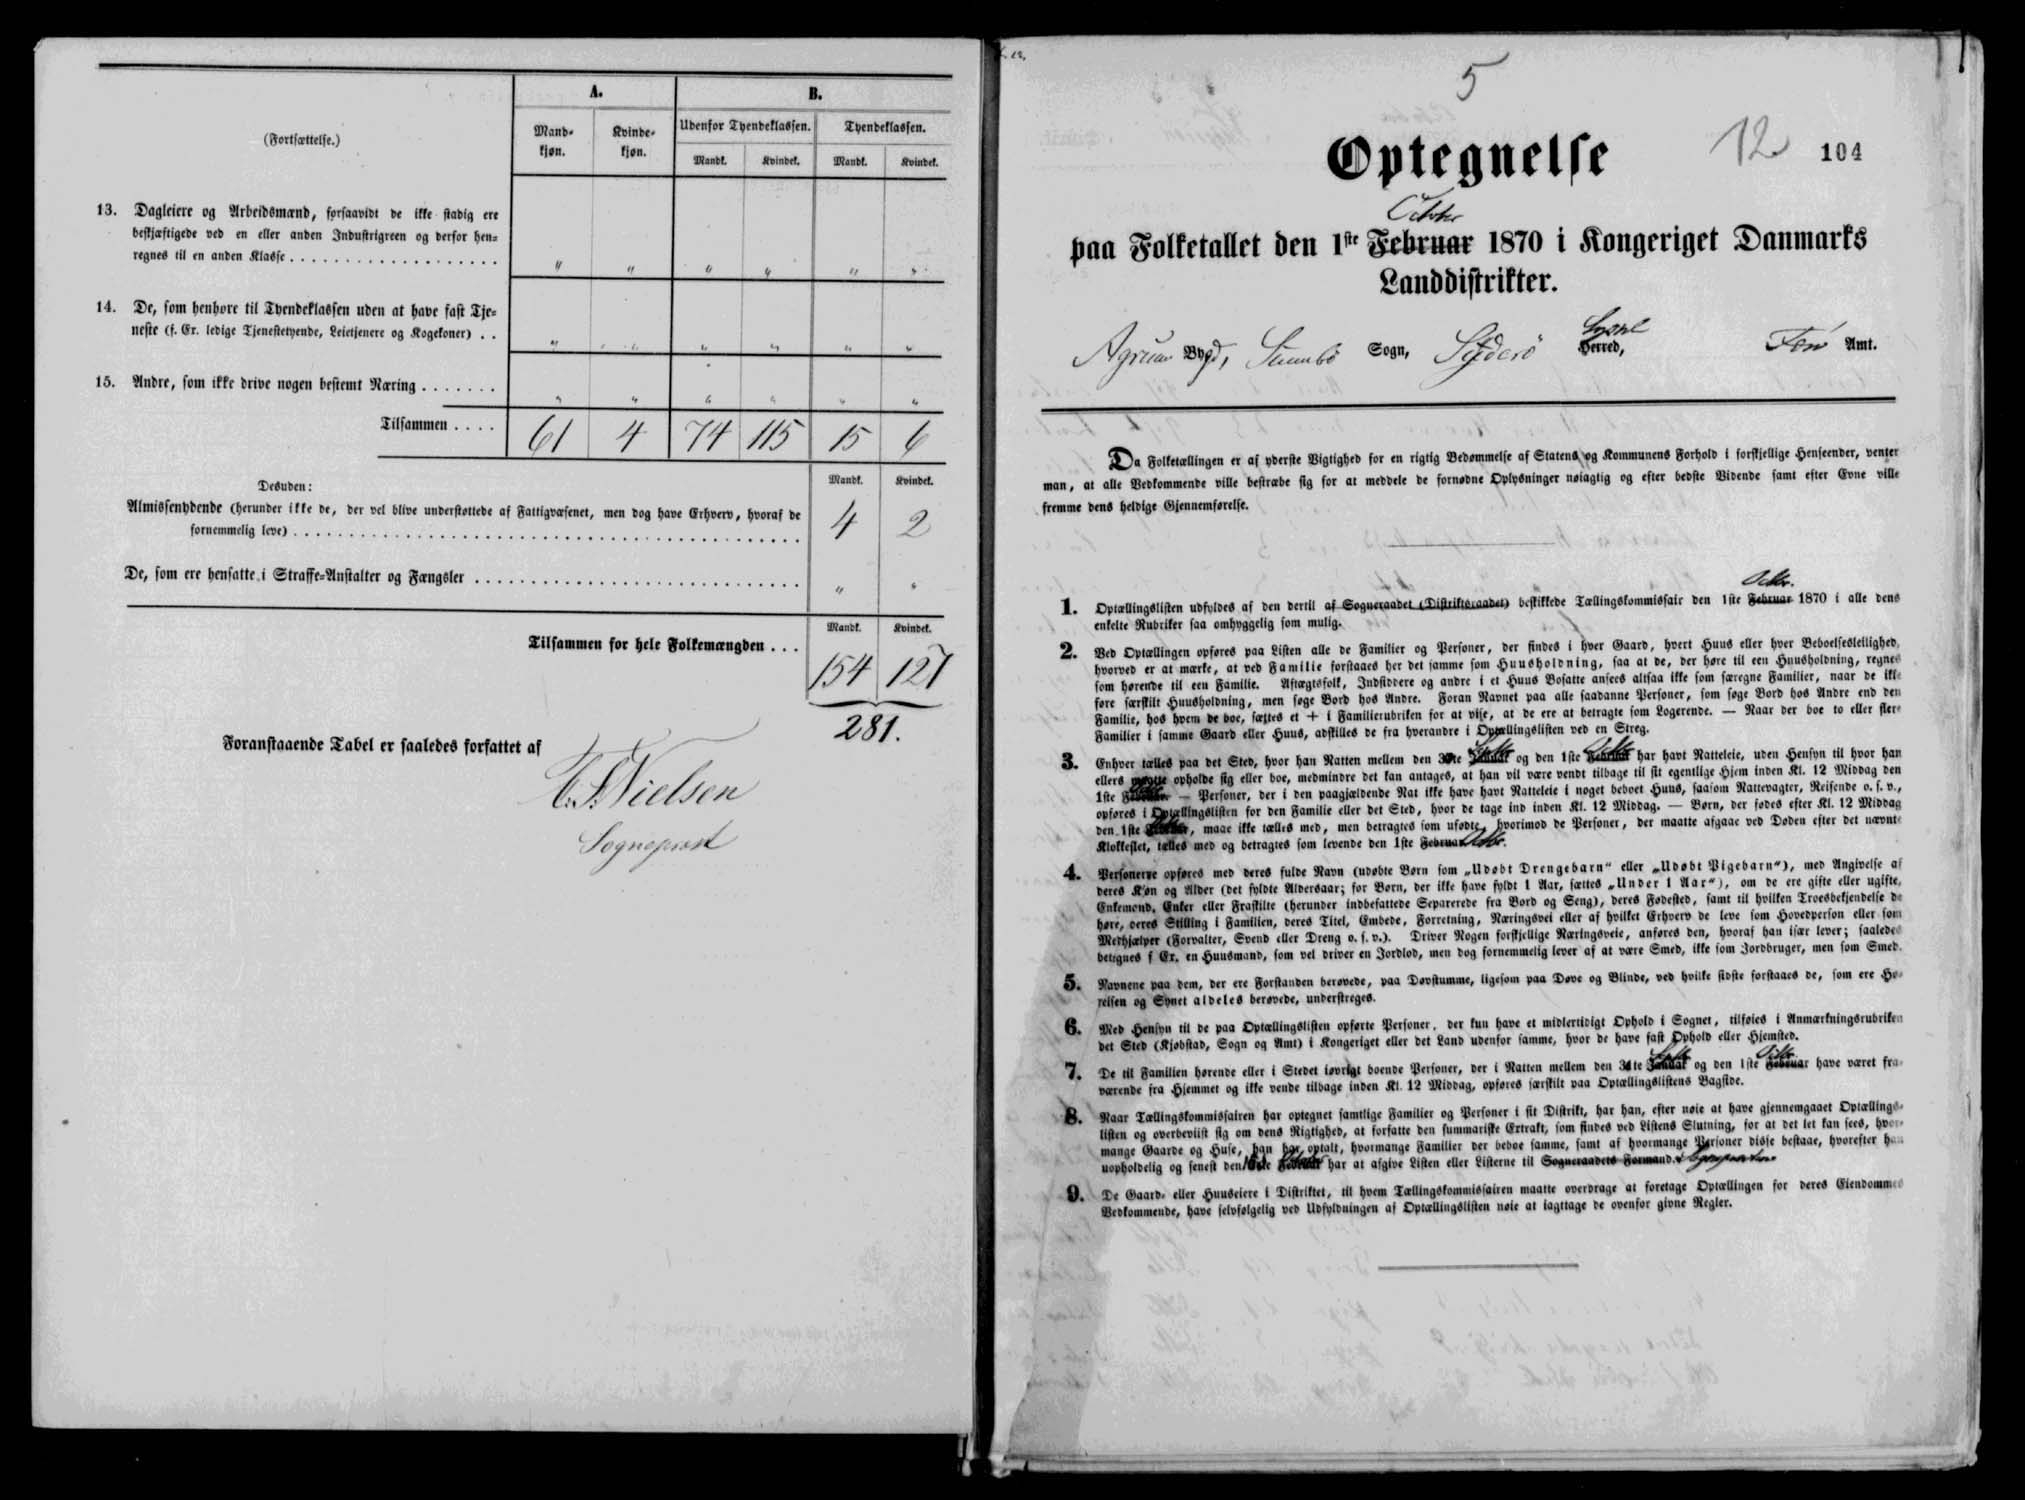 A.
B.
(Fortsættelse.)
Mand-
kjøn.
Kvinde-
kjøn.
Udenfor Tyendeklassen.
Tyendeklassen.
Mandk.
Kvindek.
Mandk.
Kvindek.
13. Dagleiere og Arbeidsmænd, forsaavidt de ikke stadig ere
beskjæftigede ved en eller anden Industrigreen og derfor hen-
regnes til en anden Klasse . . . . . . . . . . . . . . . . . . . " " " " " "
14. De, som henhøre til Tyendeklassen uden at have fast Tje-
neste (f. Ex. ledige Tjenestetyende, Leietjenere og Kogekoner) . . " " " " " "
15. Andre, som ikke drive nogen bestemt Næring . . . . . . . " " " " " "
Tilsammen . . . . 61 4 74 115 15 6
Desuden:
Mandk. Kvindek.
Almissenydende (herunder ikke de, der vel blive understøttede af Fattigvæsenet, men dog have Erhverv, hvoraf de
fornemmelig leve) . . . . . . . . . . . . . . . . . . 4 2
De, som ere hensatte i Straffe-Anstalter og Fængsler . . . . . . . . . . . . . . " "
Mandk. Kvindek.
Tilsammen for hele Folkemængden . . . 154 127
281.
Foranstaaende Tabel er saaledes forfattet af
Nielsen
Sognepræst
5
12 104
Optegnelse
Octbr
paa Folketallet den 1ste Februar 1870 i Kongeriget Danmarks
Landdistrikter.
Syssel
Bygd, Sumbö Sogn, Syderö Herred, Færö Amt.
Da Folketællingen er af yderste Vigtighed for en rigtig Bedømmelse af Statens og Kommunens Forhold i forskjellige Henseender, venter
man, at alle Vedkommende ville bestræbe sig for at meddele de fornødne Oplysninger nøiagtig og efter bedste Vidende samt efter Evne ville
fremme dens heldige Gjennemførelse.
Octbr.
1. Optællingslisten udfyldes af den dertil af Sogneraadet (Distriktsraadet) beskikkede Tællingskommissair den 1ste Februar 1870 i alle dens
enkelte Rubriker saa omhyggelig som mulig.
2. Ved Optællingen opføres paa Listen alle de Familier og Personer, der findes i hver Gaard, hvert Huus eller hver Beboelsesleilighed,
hvorved er at mærke, at ved Familie forstaaes her det samme som Huusholdning, saa at de, der høre til een Huusholdning, regnes
som hørende til een Familie. Aftægtsfolk, Indsiddere og andre i et Huus Bosatte ansees altsaa ikke som særegne Familier, naar de ikke
føre særskilt Huusholdning, men søge Bord hos Andre. Foran Navnet paa alle saadanne Personer, som søge Bord hos Andre end den
Familie, hos hvem de boe, sættes et + i Familierubriken for at vise, at de ere at betragte som Logerende. — Naar der boe to eller flere
Familier i samme Gaard eller Huus, adskilles de fra hverandre i Optællingslisten ved en Streg.
Septbr Octbr
3. Enhver tælles paa det Sted, hvor han Natten mellem den 30te Januar og den 1ste Februar har havt Natteleie, uden Hensyn til hvor han
ellers maatte opholde sig eller boe, medmindre det kan antages, at han vil være vendt tilbage til sit egentlige Hjem inden Kl. 12 Middag den
1ste Februar. — Personer, der i den paagjældende Nat ikke have havt Natteleie i noget beboet Huus, saasom Nattevagter, Reisende o. s. v.,
opføres i Optællingslisten for den Familie eller det Sted, hvor de tage ind inden Kl. 12 Middag. — Børn, der fødes efter Kl. 12 Middag
den 1ste Februar, maae ikke tælles med, men betragtes som ufødte, hvorimod de Personer, der maatte afgaae ved Døden efter det nævnte
Klokkeslet, tælles med og betragtes som levende den 1ste Februar Octbr.
4. Personerne opføres med deres fulde Navn (udøbte Børn som „Udøbt Drengebarn“ eller „Udøbt Pigebarn“), med Angivelse af
deres Køn og Alder (det fyldte Aldersaar; for Børn, der ikke have fyldt 1 Aar, sættes „Under 1 Aar“), om de ere gifte eller ugifte,
Enkemænd, Enker eller Fraskilte (herunder indbefattede Separerede fra Bord og Seng), deres Fødested, samt til hvilken Troesbekjendelse de
høre, deres Stilling i Familien, deres Titel, Embede, Forretning, Næringsvei eller af hvilket Erhverv de leve som Hovedperson eller som
Medhjælper (Forvalter, Svend eller Dreng o. s. v.). Driver Nogen forskjellige Næringsveie, anføres den, hvoraf han især lever; saaledes
betegnes f Ex. en Huusmand, som vel driver en Jordlod, men dog fornemmelig lever af at være Smed, ikke som Jordbruger, men som Smed.
5. Navnene paa dem, der ere Forstanden berøvede, paa Døvstumme, ligesom paa Døve og Blinde, ved hvilke sidste forstaaes de, som ere Hø-
relsen og Synet aldeles berøvede, understreges.
6. Med Hensyn til de paa Optællingslisten opførte Personer, der kun have et midlertidigt Ophold i Sognet, tilføies i Anmærkningsrubriken
det Sted (Kjøbstad, Sogn og Amt) i Kongeriget eller det Land udenfor samme, hvor de have fast Ophold eller Hjemsted.
Septbr Octbr.
7. De til Familien hørende eller i Stedet iøvrigt boende Personer, der i Natten mellem den 31te Januar og den 1ste Februar have været fra-
værende fra Hjemmet og ikke vende tilbage inden Kl. 12 Middag, opføres særskilt paa Optællingslistens Bagside.
8. Naar Tællingskommissairen har optegnet samtlige Familier og Personer i sit Distrikt, har han, efter nøie at have gjennemgaaet Optællings-
listen og overbeviist sig om dens Rigtighed, at forfatte den summariske Extrakt, som findes ved Listens Slutning, for at det let kan sees, hvor-
mange Gaarde og Huse, han har optalt, hvormange Familier der beboe samme, samt af hvormange Personer disse bestaae, hvorefter han
uopholdelig og senest den Februar har at afgive Listen eller Listerne til Sogneraadets Formand. Sognepræsten
9. De Gaard- eller Huuseiere i Distriktet, til hvem Tællingskommissairen maatte overdrage at foretage Optællingen for deres Eiendommes
Vedkommende, have selvfølgelig ved Udfyldningen af Optællingslisten nøie at iagttage de ovenfor givne Regler.